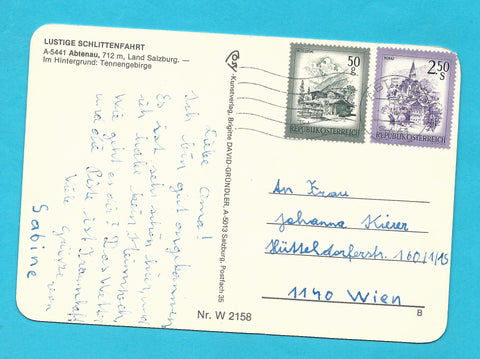 LUSTIGE SCHLITTENFAHRT
A-5441 Abtenau, 712 m, Land Salzburg. —
Im Hintergrund: Tennengebirge
Liebe Oma!
Ich bin gut angekommen
Es ist sehr schön hier und
ich habe kein Heimweh.
Wie geht es dir? Das Wetter
und die Piste ist traumhaft
Viele Grüsze
Sabine
-Kunstverlag, Brigitte DAVID-GRÜNDLER, A-5013 Salzburg, Postfach 35
50 g
REPUBLIK ÖSTERREICH
2,50 S
REPUBLIK ÖSTERREICH
An Frau
Johanna Kierer
Hütteldorferstr. 160/1/15
1140 Wien
Nr. W 2158
B